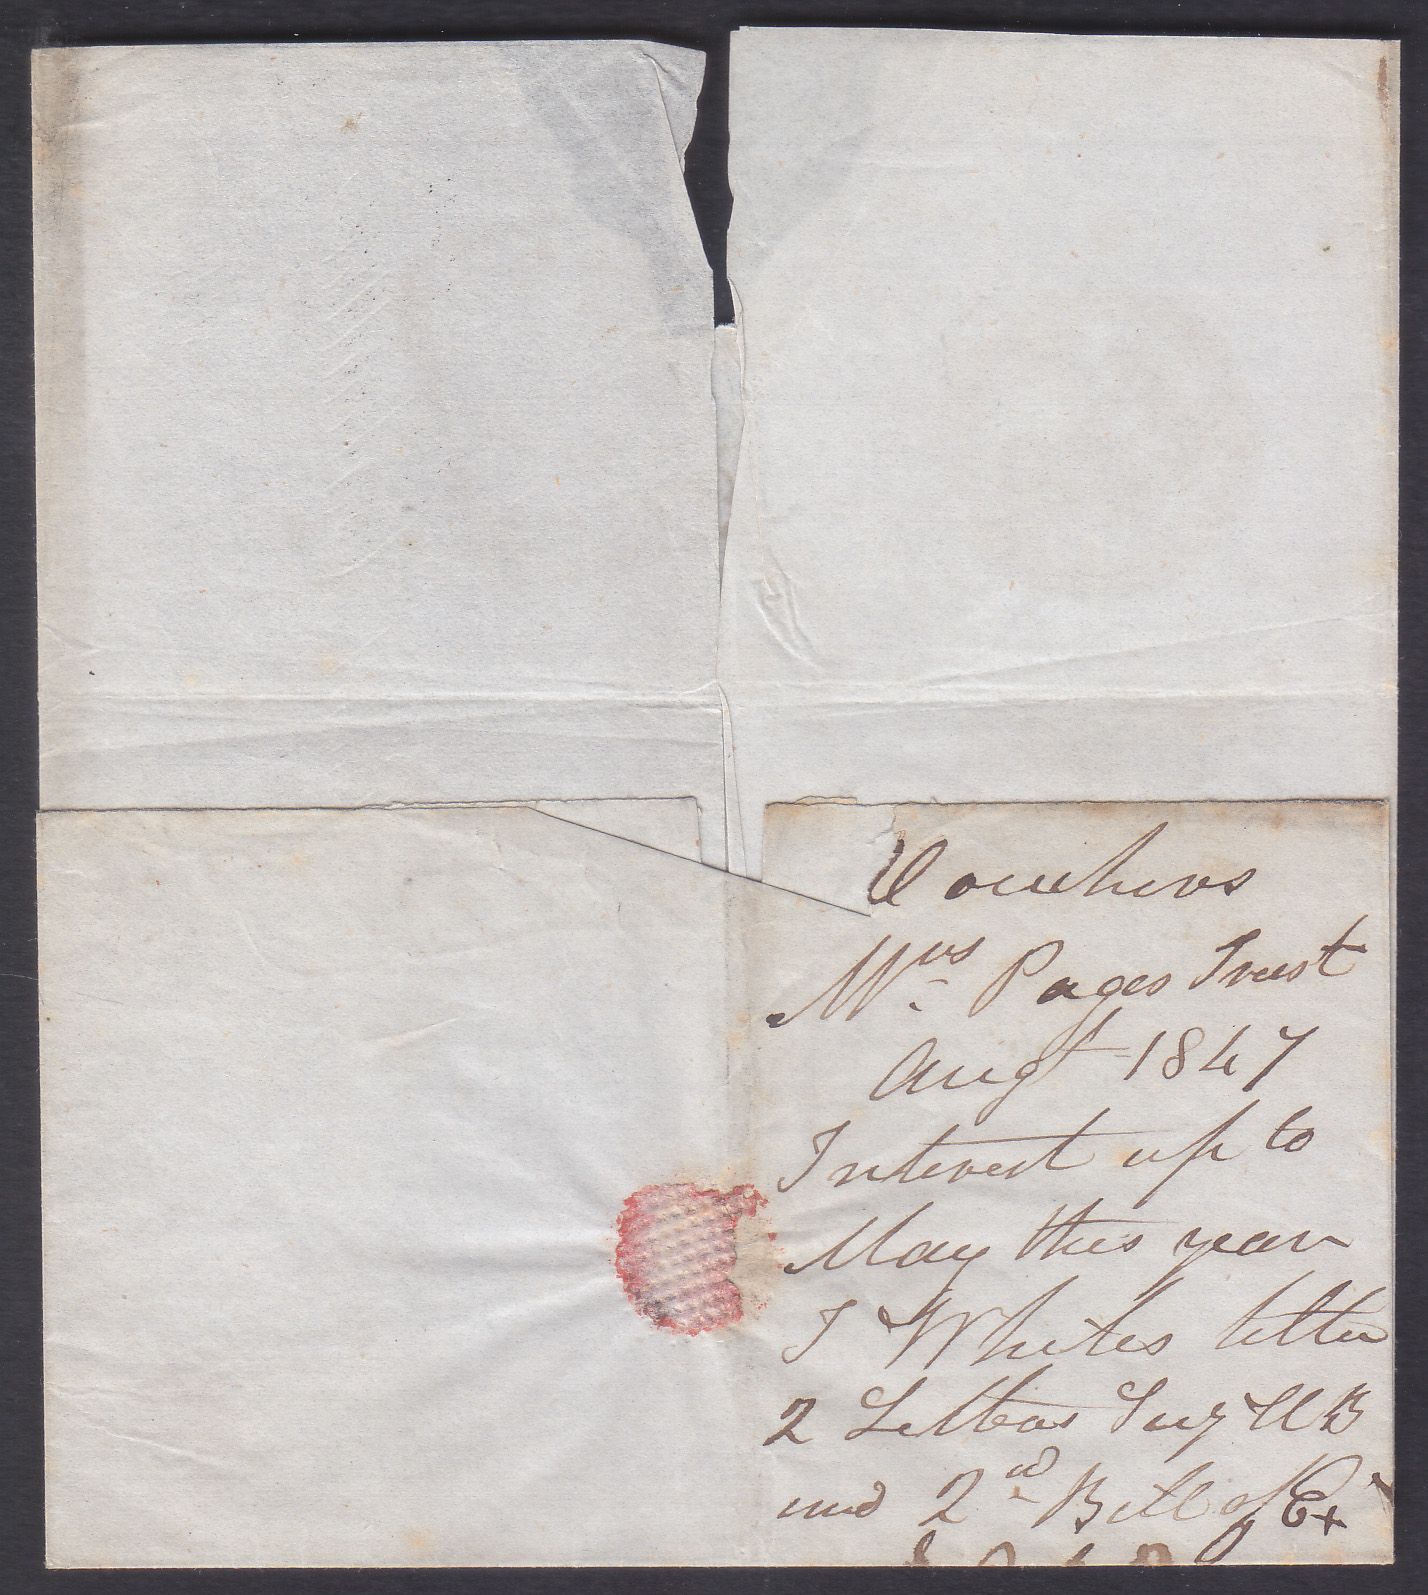 Vouchers
Mrs Pages Trust
Augt 1847
Interest up to
May this year
J Whites letter
2 Letters
and 2nd Bill of Ex